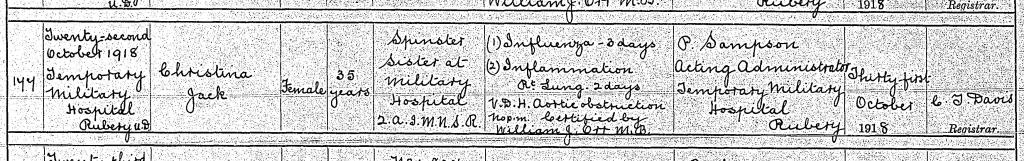 U.D.
William J. Orr M.B.
Rubery
1918
Registrar.
177
Twenty=second
October 1918
Temporary
Military
Hospital
Rubery U.D.
Christina
Jack
Female
35
years
Spinster
Sister at
Military
Hospital
Q.A.I.M.N.S.R.
(1) Influenza - 3 days
(2) Inflammation
Rt. Lung. 2 days
V.D.H. Aortic obstruction
No p.m. Certified by
William J. Orr M.B.
P. Sampson
Acting Administrator
Temporary Military
Hospital
Rubery
Thirty first
October
1918
C. J. Davis
Registrar.
Twenty third